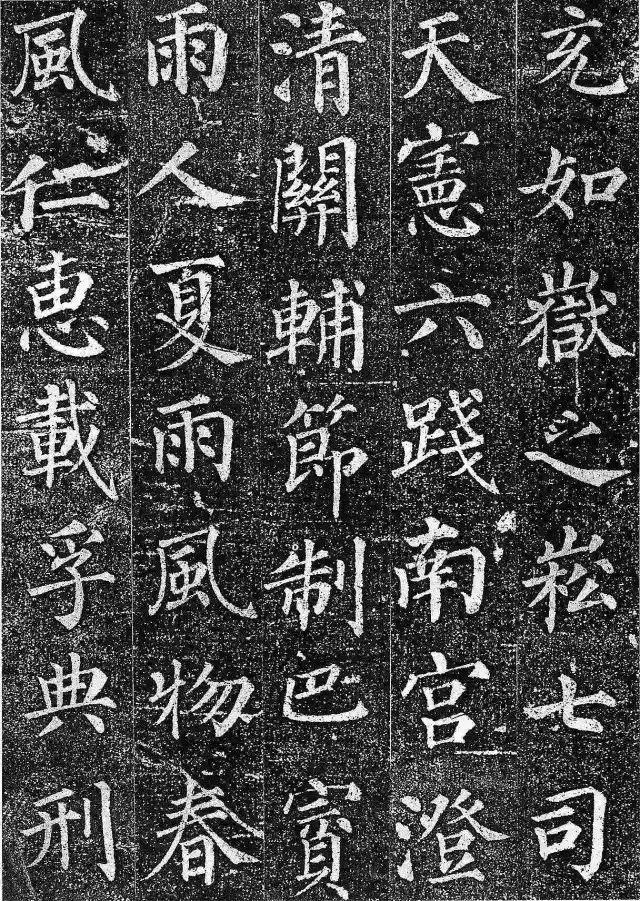 充如嶽之崧七司
天憲六踐南宮澄
清關輔節制巴賨
雨人夏雨風物春
風仁惠載孚典刑